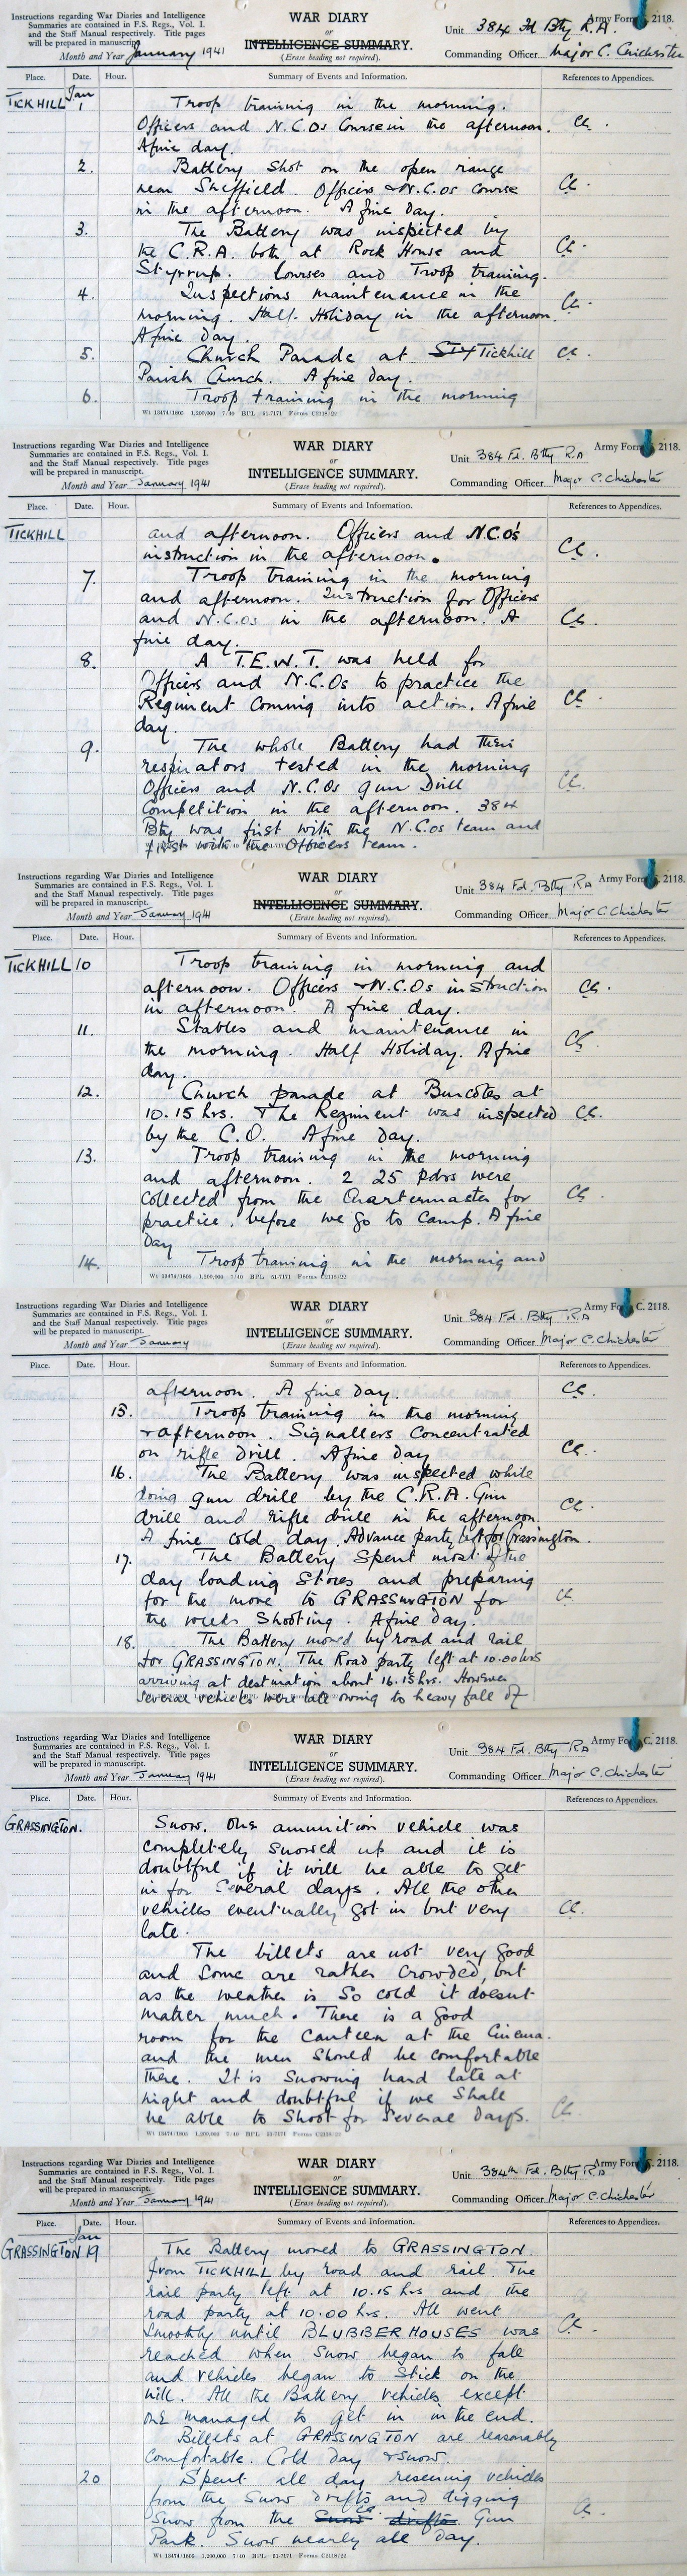 Instructions regarding War Diaries and Intelligence
Summaries are contained in F.S. Regs., Vol. I.
and the Staff Manual respectively. Title pages
will be prepared in manuscript.
Month and Year January 1941
WAR DIARY
or
INTELLIGENCE SUMMARY.
(Erase heading not required).
Army Form C. 2118.
Unit 384 Fd Bty R.A.
Commanding Officer Major C. Chichester
Place. Date. Hour. Summary of Events and Information. References to Appendices.
TICKHILL Jan
1 Troop training in the morning.
Officers and N.C.Os Course in the afternoon. CC.
A fine day.
2. Battery Shot on the open range
near Sheffield. Officers & N.C.Os Course CC.
in the afternoon. A fine Day.
3. The Battery was inspected by
the C.R.A. both at Rock House and CC.
Styrrup. Courses and Troop training.
4. Inspections maintenance in the
morning. Half Holiday in the afternoon. CC.
A fine Day.
5. Church Parade at Sty Tickhill CC.
Parish Church. A fine Day.
6. Troop training in the morning
Wt 13474/1805 1,200,000 7/40 BPL 51-7171 Forms C2118/22
Instructions regarding War Diaries and Intelligence
Summaries are contained in F.S. Regs., Vol. I.
and the Staff Manual respectively. Title pages
will be prepared in manuscript.
Month and Year January 1941
WAR DIARY
or
INTELLIGENCE SUMMARY.
(Erase heading not required).
Army Form C. 2118.
Unit 384 Fd. Btty R.A
Commanding Officer Major C. Chichester
Place. Date. Hour. Summary of Events and Information. References to Appendices.
TICKHILL and afternoon. Officers and N.C.O's
instruction in the afternoon. CC.
7. Troop training in the morning
and afternoon. Instruction for Officers
and N.C.Os in the afternoon. A CC.
fine day.
8. A T.E.W.T. was held for
Officers and N.C.Os to practice the
Regiment Coming into action. A fine CC.
day.
9. The whole Battery had their
respirators tested in the morning
Officers and N.C.Os gun Drill CC.
Competition in the afternoon. 384
Bty was first with the N.C.Os team and
first with the Officers team.
Instructions regarding War Diaries and Intelligence
Summaries are contained in F.S. Regs., Vol. I.
and the Staff Manual respectively. Title pages
will be prepared in manuscript.
Month and Year January 1941
WAR DIARY
or
INTELLIGENCE SUMMARY.
(Erase heading not required).
Army Form C. 2118.
Unit 384 Fd. Btty RA
Commanding Officer Major C. Chichester
Place. Date. Hour. Summary of Events and Information. References to Appendices.
TICKHILL 10 Troop training in morning and
afternoon. Officers & N.C.Os instruction CC.
in afternoon. A fine day.
11. Stables and maintenance in
the morning. Half Holiday. A fine CC.
day.
12. Church parade at Burcotes at
10.15 hrs. The Regiment was inspected CC.
by the C.O. A fine Day.
13. Troop training in the morning
and afternoon. 2 25 pdrs were
collected from the Quartermaster for CC.
practice, before we go to Camp. A fine
Day
14. Troop training in the morning and
Wt 13474/1805 1,200,000 7/40 BPL 51-7171 Forms C2118/22
Instructions regarding War Diaries and Intelligence
Summaries are contained in F.S. Regs., Vol. I.
and the Staff Manual respectively. Title pages
will be prepared in manuscript.
Month and Year January
WAR DIARY
or
INTELLIGENCE SUMMARY.
(Erase heading not required).
Army Form C. 2118.
Unit 384 Fd. Btty RA
Commanding Officer Major C. Chichester
Place. Date. Hour. Summary of Events and Information. References to Appendices.
afternoon. A fine Day. CC.
15. Troop training in the morning
& afternoon. Signallers Concentrated
on rifle Drill. A fine Day CC.
16. The Battery was inspected while
doing gun drill by the C.R.A. Gun
drill and rifle drill in the afternoon. CC.
A fine cold day. Advance party left for Grassington.
17. The Battery Spent most of the
day loading Stores and preparing
for the move to GRASSINGTON for CC
the weeks Shooting. A fine Day.
18. The Battery moved by road and rail
for GRASSINGTON. The Road party left at 10.00hrs
arriving at destination about 16.15 hrs. However
several vehicles were late owing to heavy fall of
Instructions regarding War Diaries and Intelligence
Summaries are contained in F.S. Regs., Vol. I.
and the Staff Manual respectively. Title pages
will be prepared in manuscript.
Month and Year January 1941
WAR DIARY
or
INTELLIGENCE SUMMARY.
(Erase heading not required).
Army Form C. 2118.
Unit 384 Fd. Btty RA
Commanding Officer Major C. Chichester
Place. Date. Hour. Summary of Events and Information. References to Appendices.
GRASSINGTON. Snow. One ammunition vehicle was
completely snowed up and it is
doubtful if it will be able to get
in for Several days. All the other
vehicles eventually got in but very CC.
late.
The billets are not very good
and Some are rather Crowded, but
as the weather is So cold it doesnt
matter much. There is a good
room for the Canteen at the Cinema.
and the men Should be comfortable
there. It is Snowing hard late at
night and doubtful if we Shall
be able to Shoot for Several Days. CC
Wt 13474/1805 1,200,000 7/40 BPL 51-7171 Forms C2118/22
Instructions regarding War Diaries and Intelligence
Summaries are contained in F.S. Regs., Vol. I.
and the Staff Manual respectively. Title pages
will be prepared in manuscript.
Month and Year January 1941
WAR DIARY
or
INTELLIGENCE SUMMARY.
(Erase heading not required).
Army Form C. 2118.
Unit 384th Fd. Btty R.A
Commanding Officer Major C. Chichester
Place. Date. Hour. Summary of Events and Information. References to Appendices.
Jan
GRASSINGTON 19 The Battery moved to GRASSINGTON.
from TICKHILL by road and rail. The
rail party left at 10.15 hrs and the
road party at 10.00 hrs. All went
Smoothly until BLUBBERHOUSES was CC.
reached when Snow began to fall
and vehicles began to Stick on the
hill. All the Battery vehicles except
one managed to get in in the end.
Billets at GRASSINGTON are reasonably
Comfortable. Cold Day & snow.
20 Spent all day rescuing vehicles
from the Snow drifts and digging
Snow from the Snow drifts CC. Gun CC.
Park. Snow nearly all Day.
Wt 13474/1805 1,200,000 7/40 BPL 51-7171 Forms C2118/22